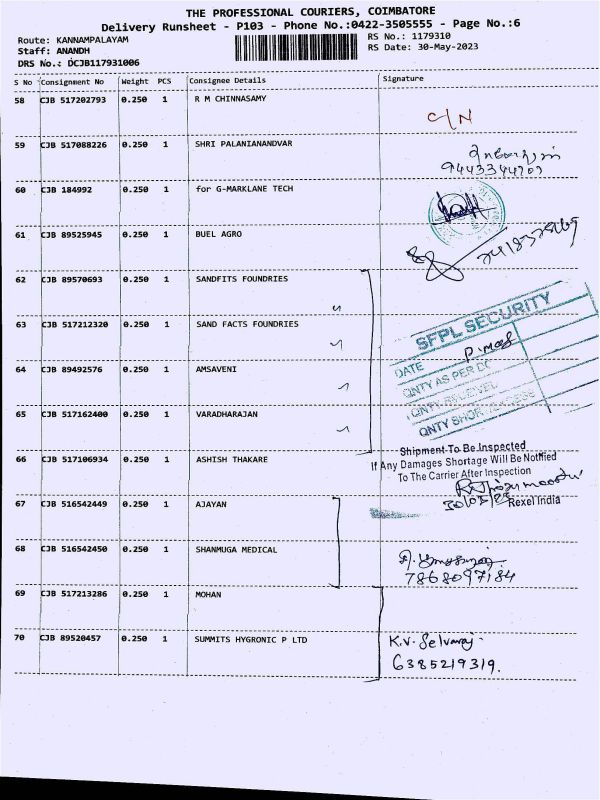 THE PROFESSIONAL COURIERS, COIMBATORE
Delivery Runsheet - P103 - Phone No.:0422-3505555 - Page No.:6
Route: KANNAMPALAYAM
Staff: ANANDH
DRS No.: DCJB117931006
RS No.: 1179310
RS Date: 30-May-2023
S No Consignment No Weight PCS Consignee Details Signature
58 CJB 517202793 0.250 1 R M CHINNASAMY
C/N
59 CJB 517088226 0.250 1 SHRI PALANIANANDVAR
60 CJB 184992 0.250 1 for G-MARKLANE TECH
61 CJB 89525945 0.250 1 BUEL AGRO
62 CJB 89570693 0.250 1 SANDFITS FOUNDRIES
63 CJB 517212320 0.250 1 SAND FACTS FOUNDRIES
SFPL SECURITY
64 CJB 89492576 0.250 1 AMSAVENI
DATE
QNTY AS PER DC
65 CJB 517162400 0.250 1 VARADHARAJAN
66 CJB 517106934 0.250 1 ASHISH THAKARE
Shipment To Be Inspected
If Any Damages Shortage Will Be Notified
To The Carrier After Inspection
Rexel India
67 CJB 516542449 0.250 1 AJAYAN
68 CJB 516542450 0.250 1 SHANMUGA MEDICAL
7868097184
69 CJB 517213286 0.250 1 MOHAN
70 CJB 89520457 0.250 1 SUMMITS HYGRONIC P LTD
K.V. Selvaraj.
6385219319.